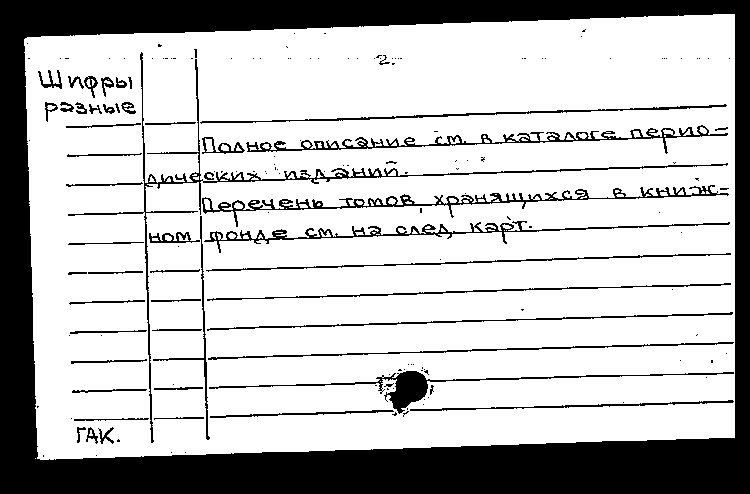 2.
Шифры
разные
Полное описание см. в каталоге перио=
дических изданий.
Перечень томов, хранящихся в книж=
ном фонде см. на след. карт.
ГАК.